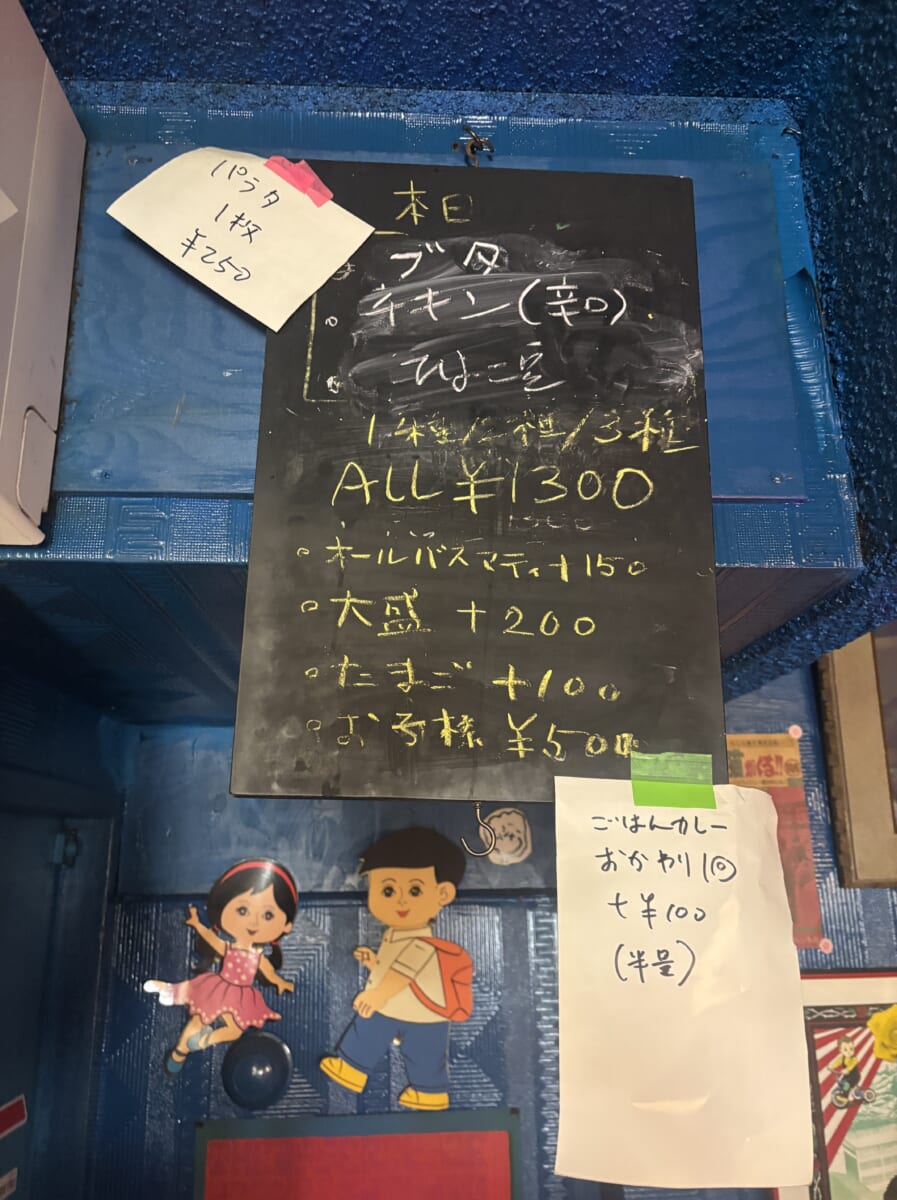 パラタ
1枚
¥250
本日
ブタ
チキン(辛口)
ひよこ豆
1種/二種/3種
ALL ¥1300
ホールバスマティ+150
大盛 +200
たまご +100
お子様 ¥500
ごはんカレー
おかわり1回
+¥100
(半量)